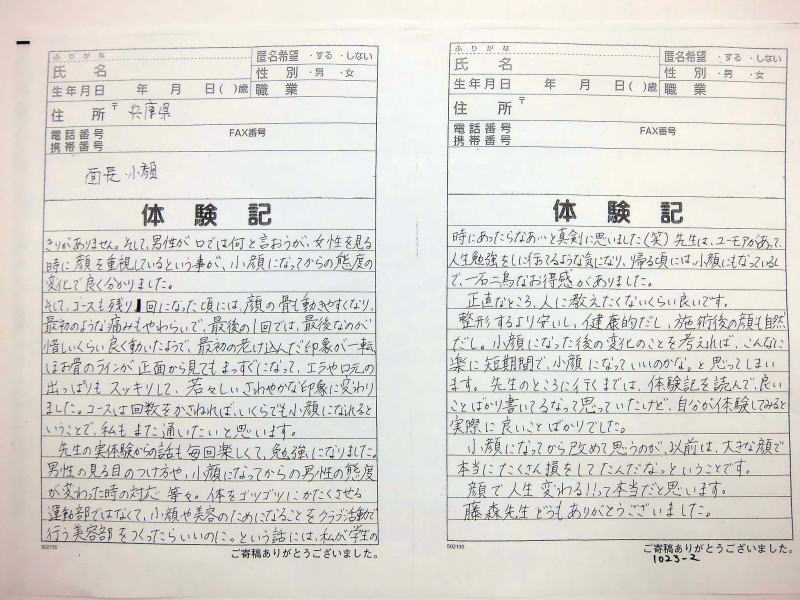 ふりがな
氏 名
匿名希望 ・する ・しない
性 別 ・男 ・女
生年月日 年 月 日( )歳
職 業
住 所 〒 兵庫県
電話番号 FAX番号
携帯番号
面長・小顔
体験記
きりがありません。そして、男性が口では何と言おうが、女性を見る
時に顔を重視しているという事が、小顔になってからの態度の
変化で良く分かりました。
そして、コースも残り1回になった頃には、顔の骨も動きやすくなり、
最初のような痛みもやわらいで、最後の1回では、最後なのが
惜しいくらい良く動いたようで、最初の老け込んだ印象が一転、
ほお骨のラインが正面から見てもまっすぐになって、エラや口元の
出っぱりもスッキリして、若々しいさわやかな印象に変わり
ました。コースは回数をかさねれば、いくらでも小顔になれると
いうことで、私もまた通いたいと思います。
先生の実体験からの話も毎回楽しくて、勉強になりました。
男性の見る目のつけ方や、小顔になってからの男性の態度
が変わった時の対応 等々。体をゴツゴツにかたくさせる
運動部ではなくて、小顔や美容のためになることをクラブ活動で
行う美容部をつくったらいいのに。という話には、私が学生の
502130
ご寄稿ありがとうございました。
ふりがな
氏 名
匿名希望 ・する ・しない
性 別 ・男 ・女
生年月日 年 月 日( )歳
職 業
住 所 〒
電話番号 FAX番号
携帯番号
体験記
時にあったらなあ…と真剣に思いました(笑)先生は、ユーモアがあって、
人生勉強をしに行ってるような気になり、帰る頃には、小顔にもなっているし
で、一石二鳥なお得感がありました。
正直なところ、人に教えたくないくらい良いです。
整形するより安いし、健康的だし、施術後の顔も自然
だし。小顔になった後の変化のことを考えれば、こんなに
楽に短期間で、小顔になっていいのかな。と思ってしまい
ます。先生のところに行くまでは、体験記を読んで、良い
ことばかり書いてるなって思っていたけど、自分が体験してみると
実際に良いことばかりでした。
小顔になってから改めて思うのが、以前は、大きな顔で
本当にたくさん損をしてたんだなっということです。
顔で人生変わる!!って本当だと思います。
藤森先生どうもありがとうございました。
502130
ご寄稿ありがとうございました。
1023-2